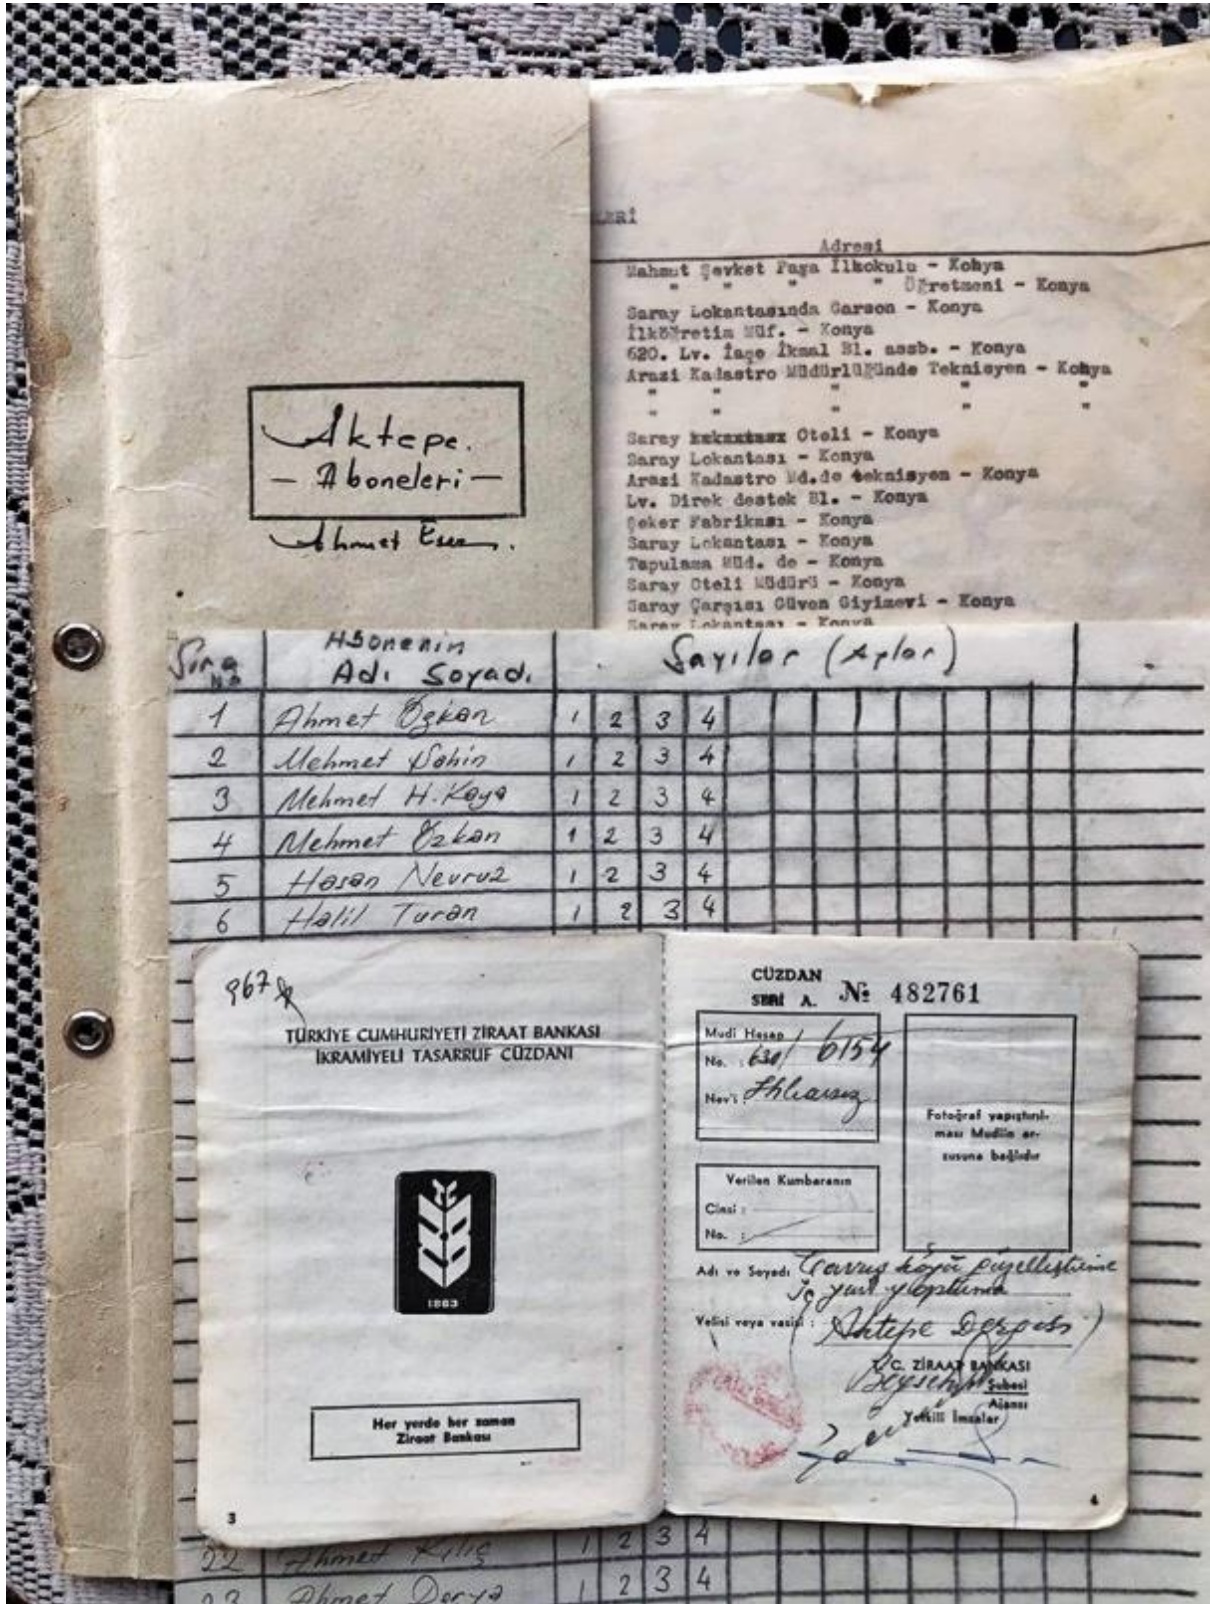 Aktepe.
— Aboneleri —
Ahmet
LERİ
Adresi
Mahmut Şevket Paşa İlkokulu - Konya
" " " " Öğretmeni - Konya
Saray Lokantasında Garson - Konya
İlköğretim Müf. - Konya
620. Lv. İaşe İkmal Bl. assb. - Konya
Arazi Kadastro Müdürlüğünde Teknisyen - Konya
" " " " "
" " " " "
Saray Oteli - Konya
Saray Lokantası - Konya
Arazi Kadastro Md.de teknisyen - Konya
Lv. Direk destek Bl. - Konya
Şeker Fabrikası - Konya
Saray Lokantası - Konya
Tapulama Müd. de - Konya
Saray Oteli Müdürü - Konya
Saray Çarşısı Güven Giyimevi - Konya
Saray Lokantası - Konya
Sıra No Abonenin Adı Soyadı Sayılar (Aylar)
1 Ahmet Özkan 1 2 3 4
2 Mehmet Şahin 1 2 3 4
3 Mehmet H. Kaya 1 2 3 4
4 Mehmet Özkan 1 2 3 4
5 Hasan Nevruz 1 2 3 4
6 Halil Turan 1 2 3 4
967
TÜRKİYE CUMHURİYETİ ZİRAAT BANKASI
İKRAMİYELİ TASARRUF CÜZDANI
TC
1863
Her yerde her zaman
Ziraat Bankası
3
CÜZDAN
SERİ A. № 482761
Mudi Hesap
No. : 630/ 6154
Nev'i : İhbarsız
Fotoğraf yapıştırıl-
ması Mudiin ar-
zusuna bağlıdır
Verilen Kumbaranın
Cinsi :
No. :
Adı ve Soyadı Çavuş köyü güzelleştirme
yaptırma
Velisi veya vasisi : Aktepe Dergisi)
T.C. ZİRAAT BANKASI
Beyşehir Şubesi
Ajansı
Yetkili İmzalar
4
22 Ahmet Kılıç 1 2 3 4
23 Ahmet Derya 1 2 3 4